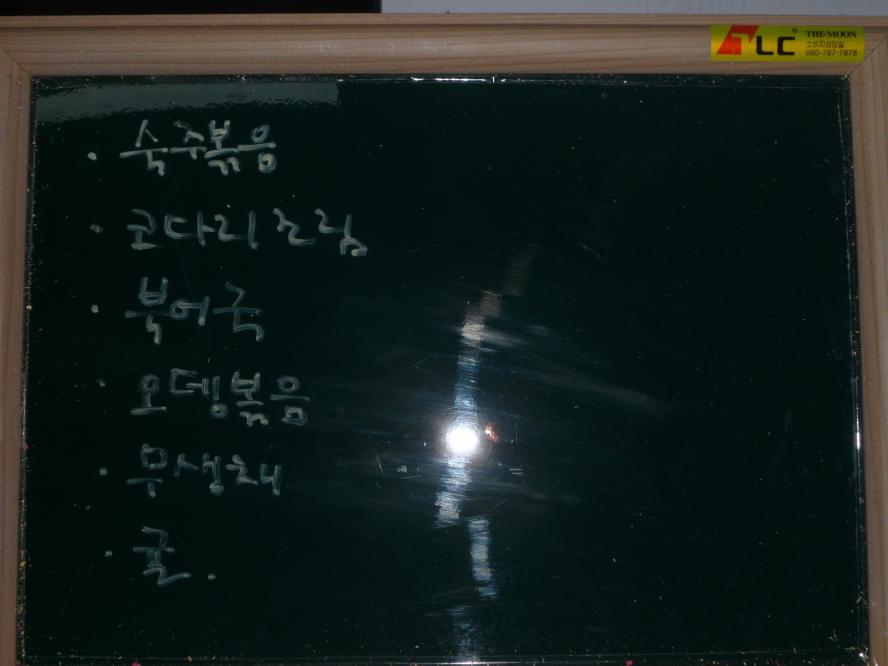 TLC THE-MOON
소비자상담실
080-767-7878
· 숙주볶음
· 코다리조림
· 북어국
· 오뎅볶음
· 무생채
· 굴.